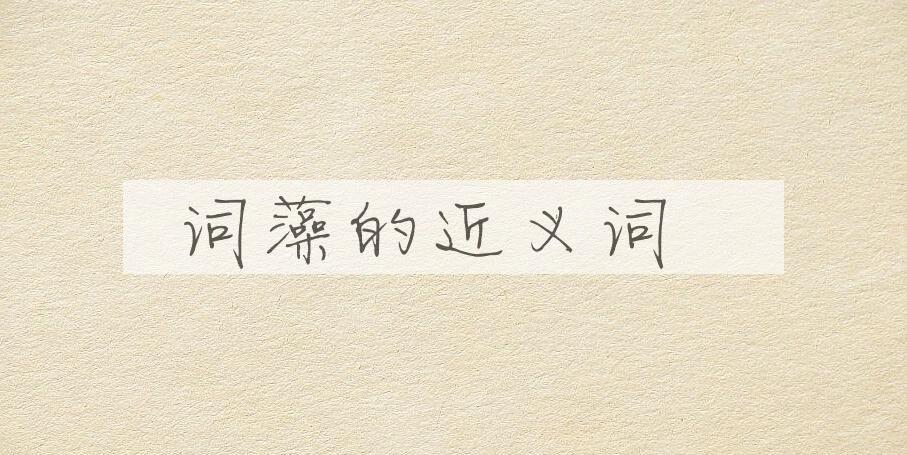 词藻的近义词